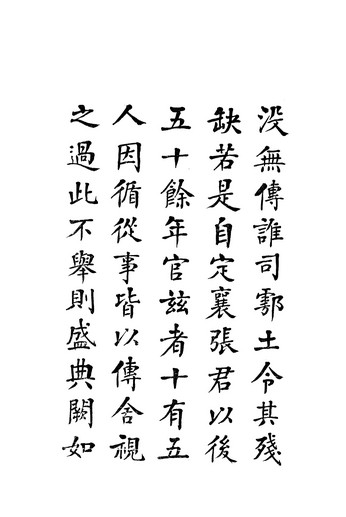 没無傳誰司鄠土令其殘
缺若是自定襄張君以後
五十餘年官玆者十有五
人因循從事皆以傳舍視
之過此不舉則盛典闕如